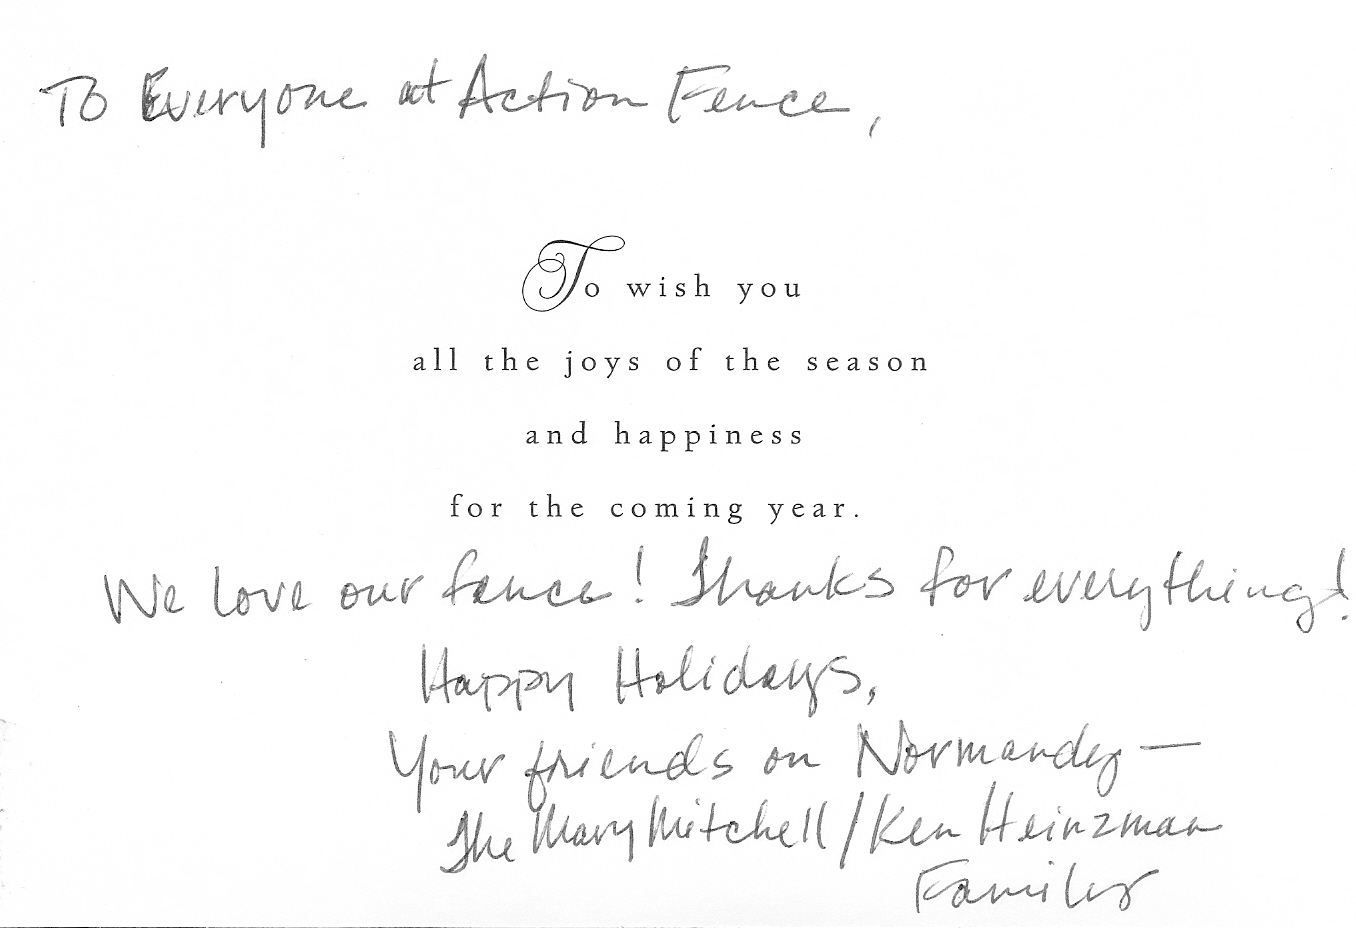 To Everyone at Action Fence,
To wish you
all the joys of the season
and happiness
for the coming year.
We love our fence! Thanks for everything!
Happy Holidays,
Your friends on Normandy —
The Mary Mitchell/Ken Heinzman
Family